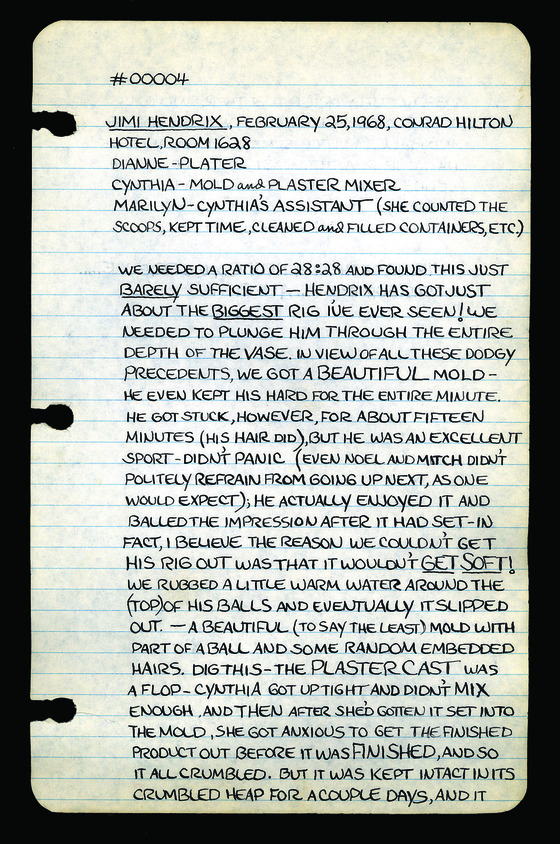 #00004
JIMI HENDRIX, FEBRUARY 25, 1968, CONRAD HILTON
HOTEL, ROOM 1628
DIANNE - PLATER
CYNTHIA - MOLD and PLASTER MIXER
MARILYN - CYNTHIA'S ASSISTANT (SHE COUNTED THE
SCOOPS, KEPT TIME, CLEANED and FILLED CONTAINERS, ETC.)
WE NEEDED A RATIO OF 28:28 AND FOUND THIS JUST
BARELY SUFFICIENT — HENDRIX HAS GOT JUST
ABOUT THE BIGGEST RIG I'VE EVER SEEN! WE
NEEDED TO PLUNGE HIM THROUGH THE ENTIRE
DEPTH OF THE VASE. IN VIEW OF ALL THESE DODGY
PRECEDENTS, WE GOT A BEAUTIFUL MOLD -
HE EVEN KEPT HIS HARD FOR THE ENTIRE MINUTE.
HE GOT STUCK, HOWEVER, FOR ABOUT FIFTEEN
MINUTES (HIS HAIR DID), BUT HE WAS AN EXCELLENT
SPORT - DIDN'T PANIC (EVEN NOEL AND MITCH DIDN'T
POLITELY REFRAIN FROM GOING UP NEXT, AS ONE
WOULD EXPECT); HE ACTUALLY ENJOYED IT AND
BALLED THE IMPRESSION AFTER IT HAD SET - IN
FACT, I BELIEVE THE REASON WE COULDN'T GET
HIS RIG OUT WAS THAT IT WOULDN'T GET SOFT!
WE RUBBED A LITTLE WARM WATER AROUND THE
(TOP) OF HIS BALLS AND EVENTUALLY IT SLIPPED
OUT. — A BEAUTIFUL (TO SAY THE LEAST) MOLD WITH
PART OF A BALL AND SOME RANDOM EMBEDDED
HAIRS. DIG THIS - THE PLASTER CAST WAS
A FLOP - CYNTHIA GOT UPTIGHT AND DIDN'T MIX
ENOUGH, AND THEN AFTER SHE'D GOTTEN IT SET INTO
THE MOLD, SHE GOT ANXIOUS TO GET THE FINISHED
PRODUCT OUT BEFORE IT WAS FINISHED, AND SO
IT ALL CRUMBLED. BUT IT WAS KEPT INTACT IN ITS
CRUMBLED HEAP FOR A COUPLE DAYS, AND IT